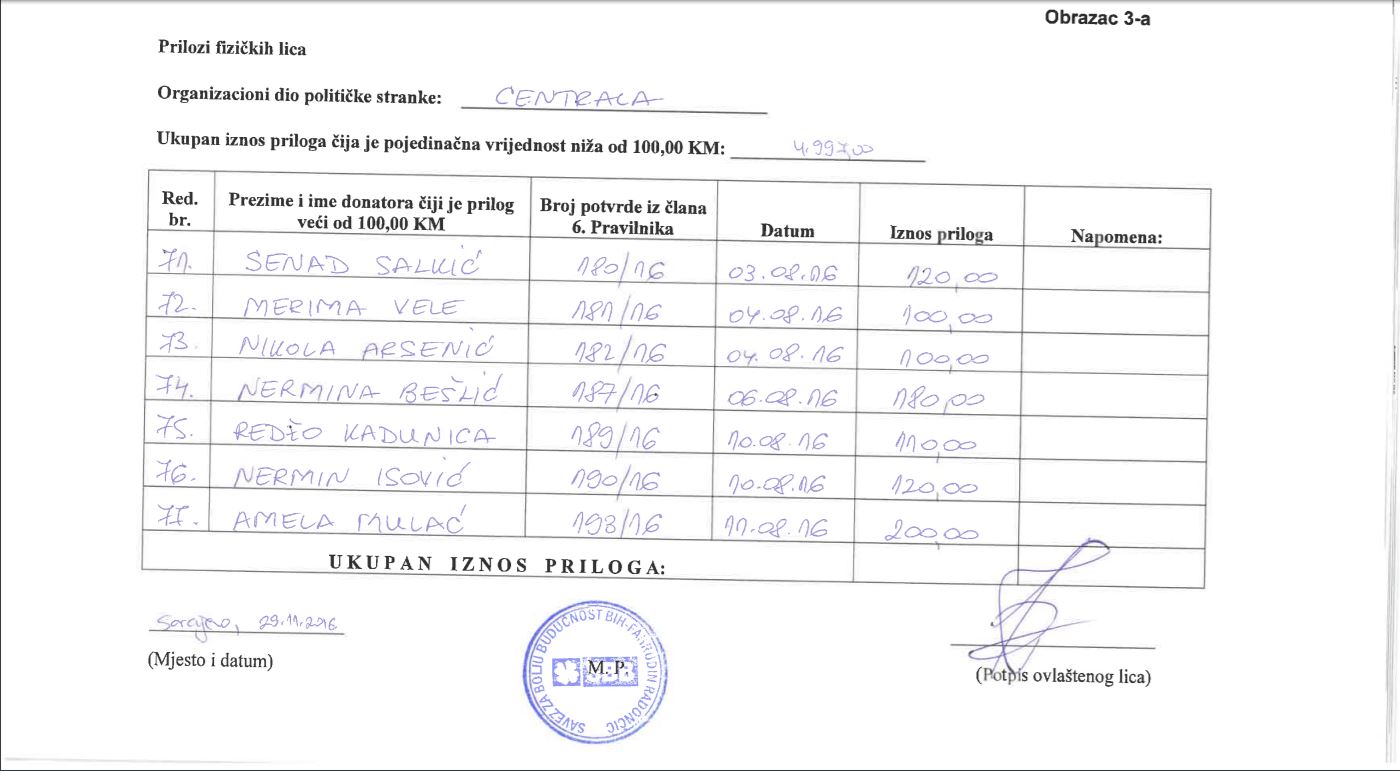 Obrazac 3-a
Prilozi fizičkih lica
Organizacioni dio političke stranke: CENTRALA
Ukupan iznos priloga čija je pojedinačna vrijednost niža od 100,00 KM: 4.997,00
Red. br. Prezime i ime donatora čiji je prilog veći od 100,00 KM Broj potvrde iz člana 6. Pravilnika Datum Iznos priloga Napomena:
71. SENAD SALKIĆ 180/16 03.08.16 120,00
72. MERIMA VELE 181/16 04.08.16 100,00
73. NIKOLA ARSENIĆ 182/16 04.08.16 100,00
74. NERMINA BEŠLIĆ 187/16 06.08.16 180,00
75. REDŽO KADUNICA 189/16 10.08.16 110,00
76. NERMIN ISOVIĆ 190/16 10.08.16 120,00
77. AMELA MULAĆ 193/16 11.08.16 200,00
UKUPAN IZNOS PRILOGA:
Sarajevo, 29.11.2016
(Mjesto i datum)
SAVEZ ZA BOLJU BUDUĆNOST BIH-FAHRUDIN RADONČIĆ
SBB
M. P.
(Potpis ovlaštenog lica)